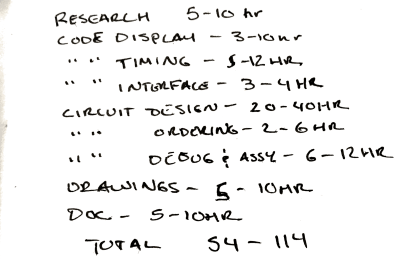 RESEARCH 5-10 hr
CODE DISPLAY - 3-10hr
" " TIMING - 5-12HR
" " INTERFACE - 3-4HR
CIRCUIT DESIGN - 20-40HR
" " ORDERING - 2-6HR
" " DEBUG & ASSY - 6-12HR
DRAWINGS - 5-10HR
DOC - 5-10HR
TOTAL 54-114